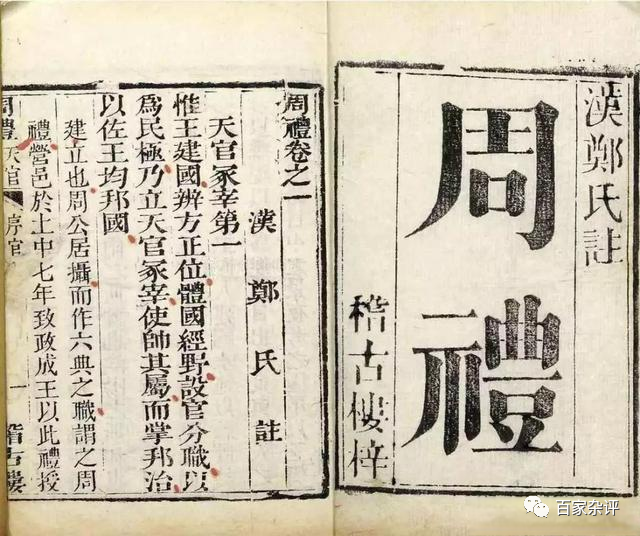 漢鄭氏註
周禮
稽古樓梓
周禮卷之一
漢鄭氏註
天官冢宰第一
惟王建國辨方正位體國經野設官分職以
爲民極乃立天官冢宰使師其屬而掌邦治
以佐王均邦國
建立也周公居攝而作六典之職謂之周
禮營邑於土中七年致政成王以此禮授
周禮天官 序官 一 稽古樓
百家杂评